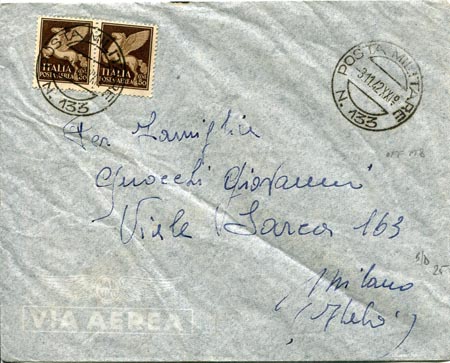 ITALIA
POSTA AEREA
ITALIA
POSTA AEREA
POSTA MILITARE
N. 133
POSTA MILITARE
3.11.42.XXI
N. 133
Per Famiglia
Gnocchi Giovanni
Viale Sarca 163
Milano
VIA AEREA